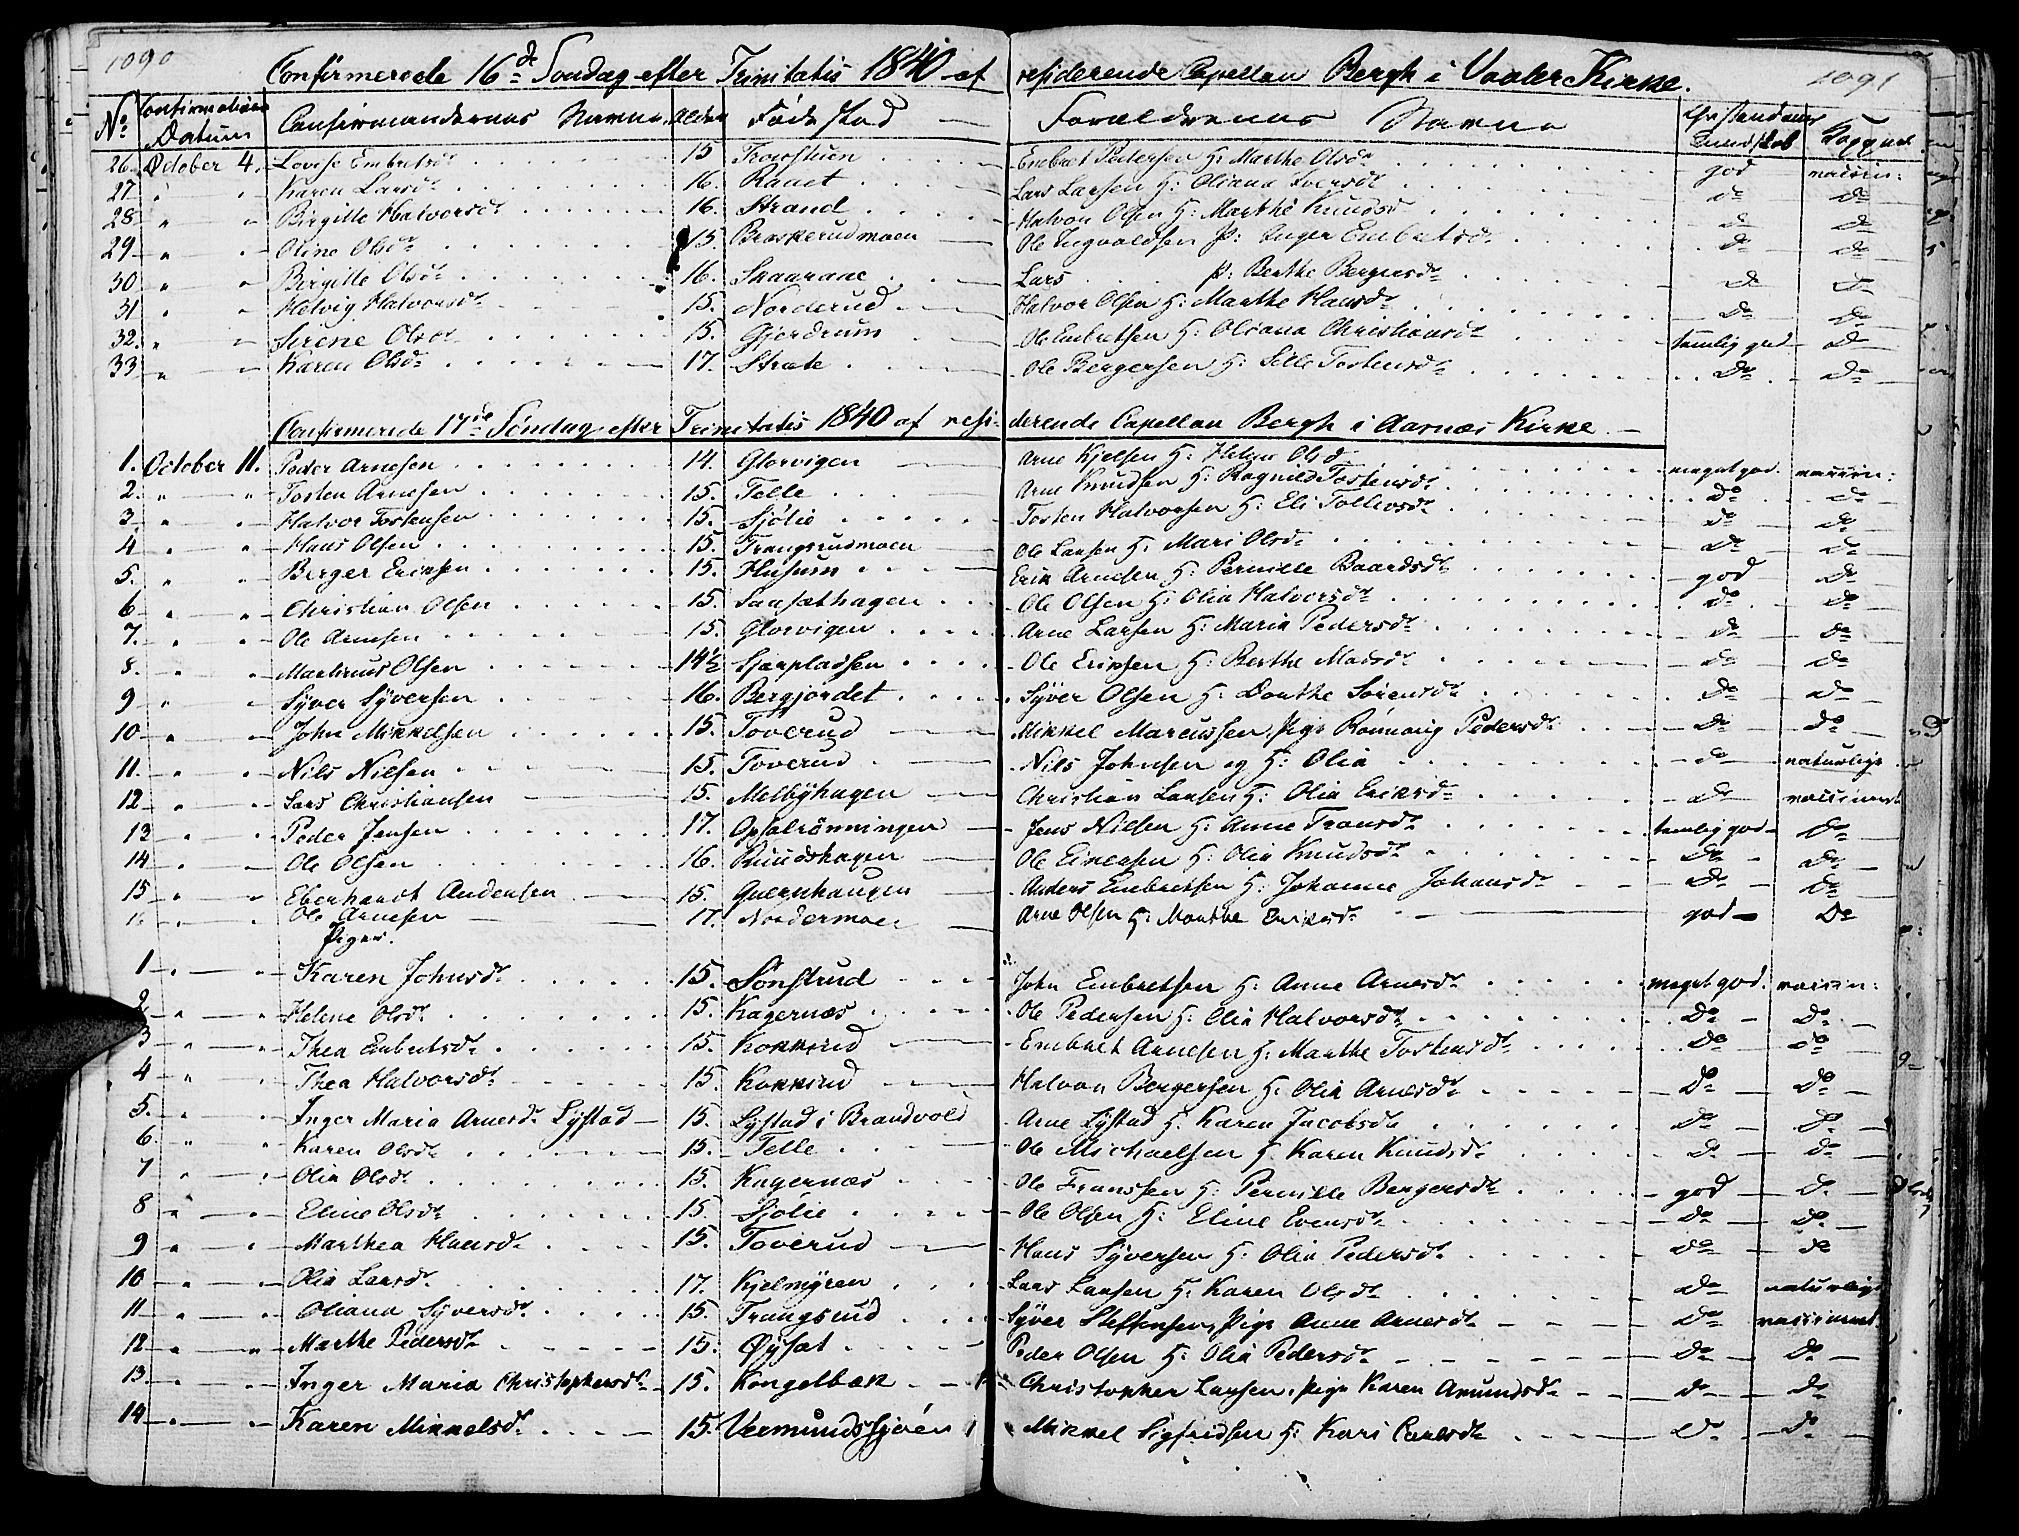 1090
1091
Confirmerede 16d Sondag efter Trinitatis 1840 af residerende Capellan Bergh i Vaaler Kirke.
No Confirmations Datum Confirmandernes Navne Alder Fødestad Forældrenes Navne Christendoms Kundskab Koppet
26. October 4. Lovise Embretsdr 15 Embret Pedersen H: Marthe Olsdr god vaccin:
27 " " Karen Larsdr 16. Raaet Lars Larsen H: Oliana Iversdr do do
28 " " Birgitte Halvorsdr 16. Strand Halvor Olsen H: Marthe Knudsd do do
29 " " Oline Olsdr 15 Braskerudmoen Ole Ingvaldsen P: Inger Embretsdr do do
30 " " Birgitte Olsdr 16. Skaaraae Lars P: Berthe Bergersdr do do
31 " " Helvig Halvorsdr 15. Norderud Halvor Olsen H: Marthe Hansdr do do
32. " " Sirene Olsdr 15. Gjerdrum Ole Embretsen H: Oliana Christiansdr temlig god do
33 " " Karen Olsdr 17. Stræte Ole Bergersen H: Sille Tostensdr do do
Confirmerede 17de Söndag efter Trinitatis 1840 af residerende Capellan Bergh i Aasnæs Kirke
1. October 11. Peder Arnesen 14. Glorvigen Arne Kjelsen H: Helene Olsd meget god vaccin:
2. " " Tosten Arnesen 15. Telle Arne Knudsen H: Ragnild Tostensdr do do
3. " " Halvor Tostensen 15. Sjölie Tosten Halvorsen H: Eli Tollevsdr do do
4 " " Hans Olsen 15. Frangsrudmoen Ole Larsen H: Mari Olsdr do do
5. " " Berger Eriksen 15. Husum Erik Arnesen H: Pernille Baardsdr god do
6 " " Christian Olsen 15. Saasæthagen Ole Olsen H: Olia Halvorsdr do do
7. " " Ole Arnesen 15. Glorvigen Arne Larsen H: Maria Pedersdr do do
8. " " Martinus Olsen 14½ Sjærpladsen Ole Eriksen H: Berthe Madsdr do do
9 " " Syver Syversen 16. Bergjordet Syver Olsen H: Dorthe Sörensdr do do
10 " " John Mikkelsen 15. Toverud Mikkel Marcussen, Pige Rönnaug Pedersdr do do
11. " " Nils Nilsen 15. Toverud Nils Johnsen og H: Olia do naturlige
12 " " Lars Christiansen 15. Melbyhagen Christian Larsen H: Olia Eriksdr do vaccineret
13 " " Peder Jensen 17. Opsalrönningen Jens Nilsen H: Anne Fransdr temlig god do
14 " " Ole Olsen 16. Ruudshagen Ole Einersen H: Olia Knudsdr do do
15 " " Eberhardt Andersen 15. Quernhaugen Anders Embretsen H: Johanne Johansdr do do
16 " " Ole Arnesen 17. Nordermoen Arne Olsen H: Marthe Eriksdr god do
Piger.
1 " " Karen Johnsdr 15. Sönstrud John Embretsen H: Anne Arnesdr meget god. vaccin:
2 " " Helene Olsdr 15. Kagernæs Ole Pedersen H: Olia Halvorsdr do do
3 " " Thea Embretsdr 15. Kokkrud Embret Arnesen H: Marthe Tostensdr do do
4 " " Thea Halvorsdr 15. Kokkrud Halvor Bergersen H: Olia Arnesdr do do
5. " " Inger Maria Arnesdr Lystad 15. Lystad i Brandvold Arne Lystad H: Karen Jacobsdr do do
6. " " Karen Olsdr 15. Telle Ole Michaelsen H: Karen Knudsdr do do
7 " " Olia Olsdr 15. Kagernæs Ole Franssen H: Pernille Bergersdr god do
8 " " Eline Olsdr 15 Sjölie Ole Olsen H: Eline Evensdr do do
9 " " Marthea Hansdr 15. Toverud Hans Syversen H: Olia Pedersdr do do
10 " " Olia Larsdr 17. Kjelmyren Lars Larsen H: Karen Olsdr do naturlige
11 " " Oliana Syversdr 15. Frangsrud Syver Steffensen, Pige Anne Arnesdr do vaccineret
12 " " Marthe Pedersdr 15. Øysæt Peder Olsen H: Olia Pedersdr do do
13. " " Inger Maria Christophersdr 15. Kongelbæk Christopher Larsen, Pige Karen Amundsdr do do
14 " " Karen Mikkelsdr 15. Vermundssjøen Mikkel Sigfridsen H: Kari Carlsdr do do